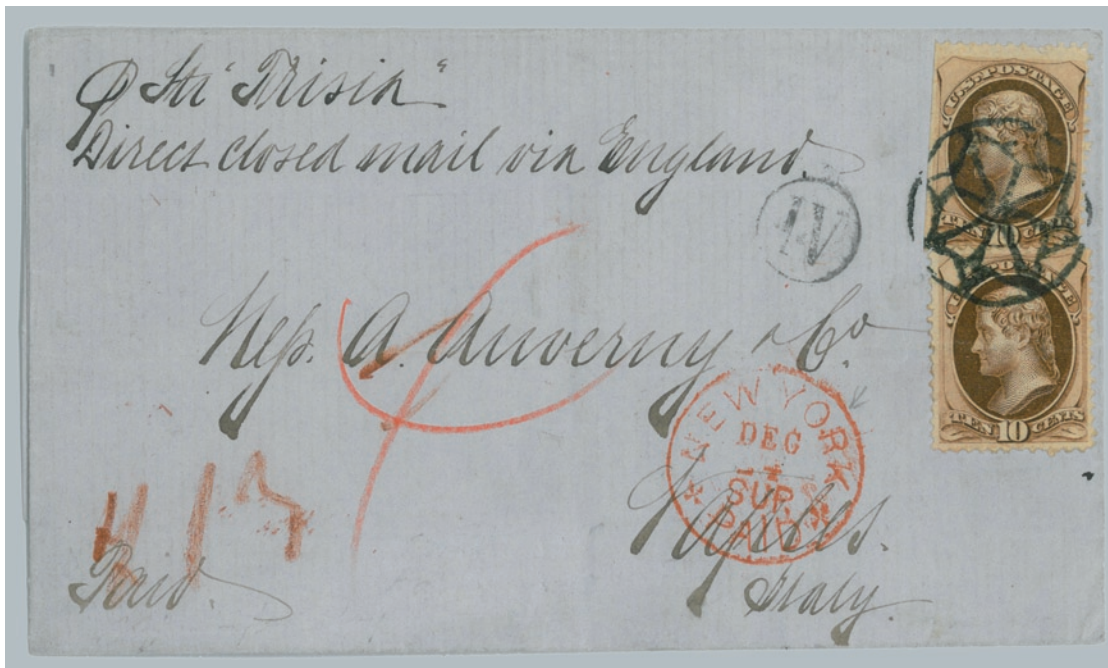 ⅌ Str "Frisia"
Direct closed mail via England.
U.S. POSTAGE
TEN 10 CENTS
IV
A. Auverny & Co.
TEN 10 CENTS
NEW YORK
DEC
SUP.
PAID
Naples.
Italy
Paid.